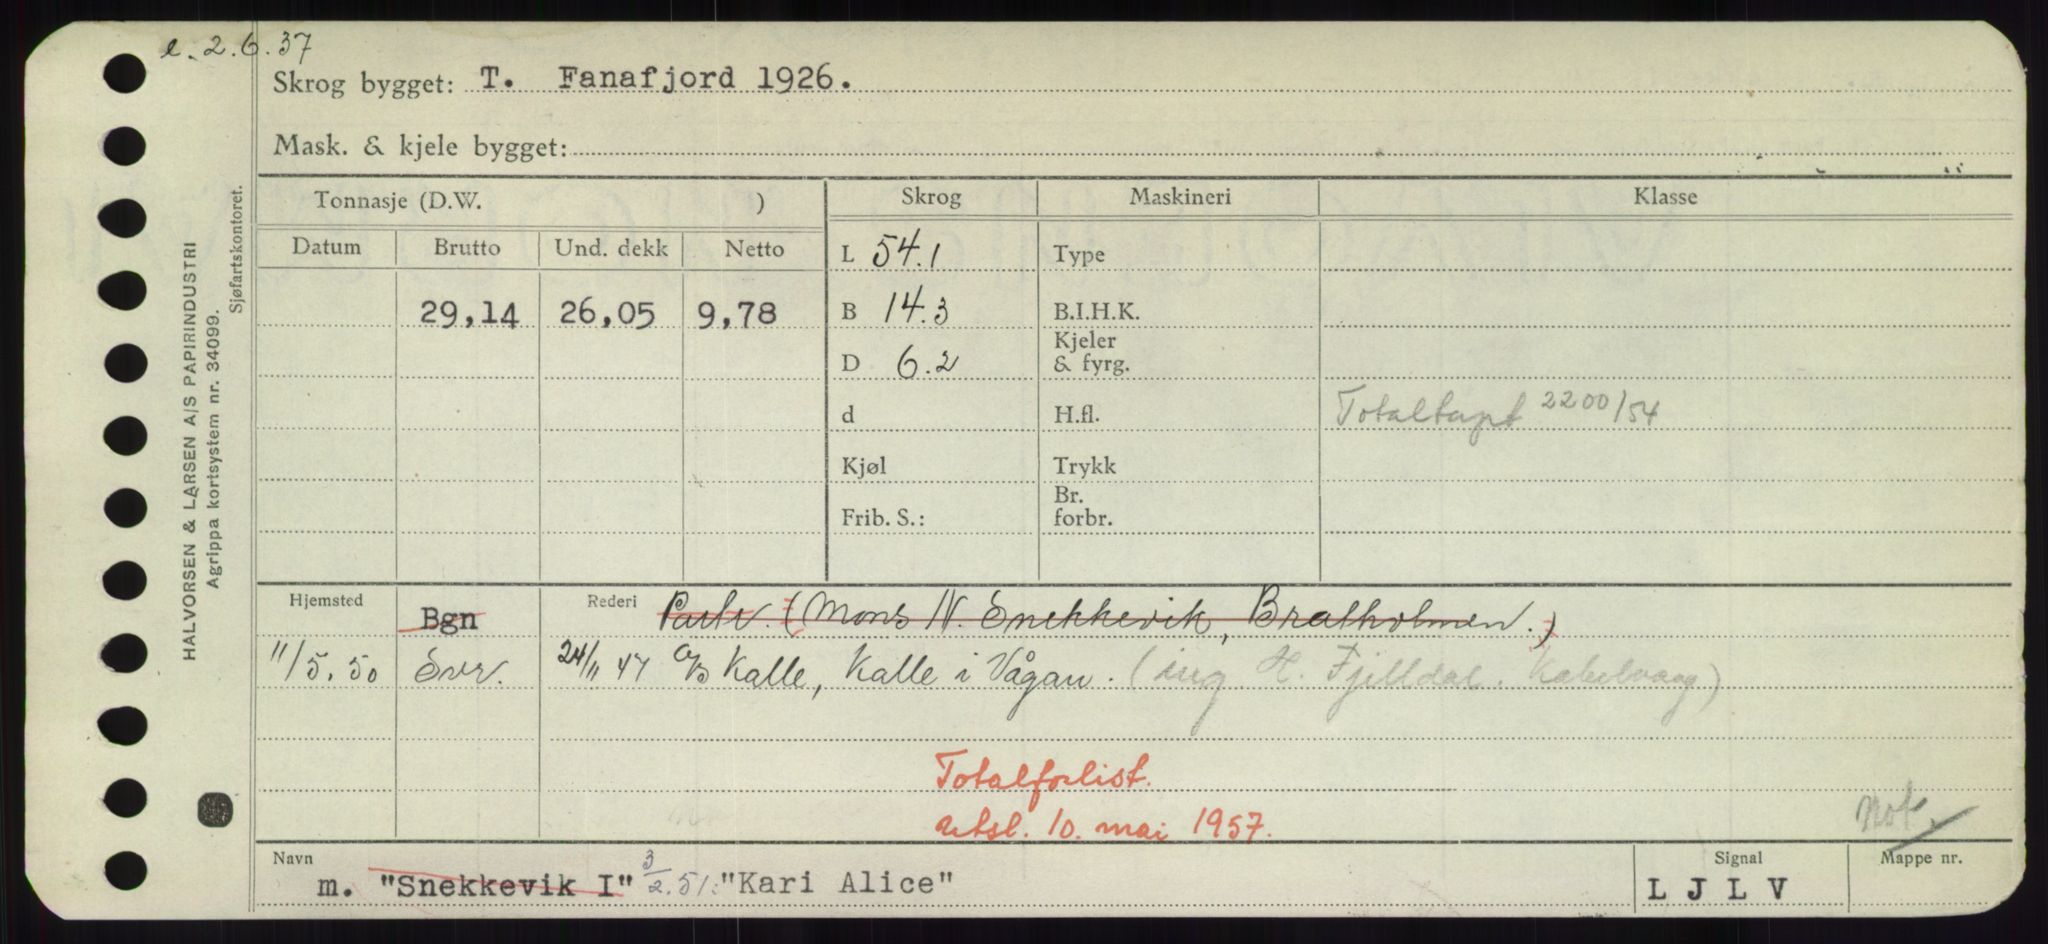 e. 2.6.37
Skrog bygget: T. Fanafjord 1926.
Mask. & kjele bygget:
Tonnasje (D.W. ) Skrog Maskineri Klasse
Datum Brutto Und. dekk Netto
L 54.1 Type
29,14 26,05 9,78 B 14.3 B.I.H.K.
D 6.2 Kjeler & fyrg.
d H.fl. Totaltapt 2200/54
Kjøl Trykk
Frib. S.: Br. forbr.
Hjemsted Bgn Rederi (Mons N. Snekkevik, Bratholmen.)
11/5.50 Svr. 24/11 47 A/S Kalle, Kalle i Vågan. (ing H. Fjelldal. Kabelvaag)
Totalforlist.
utsl. 10. mai 1957.
Not.
Navn m. "Snekkevik I" 3/2.51: "Kari Alice" Signal L J L V Mappe nr.
HALVORSEN & LARSEN A/S PAPIRINDUSTRI
Agrippa kortsystem nr. 34099.
Sjøfartskontoret.